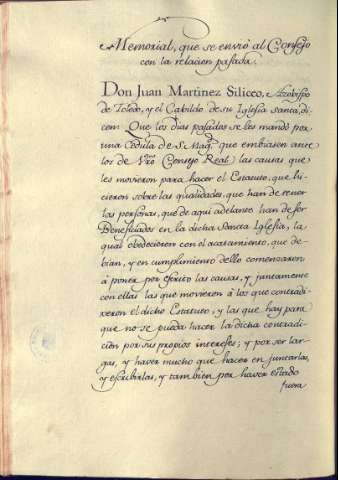 Memorial, que se envió al Consejo
con la relacion pasada.
Don Juan Martinez Siliceo, Arzobispo
de Toledo, y el Cabildo de su Iglesia santa, di-
cem Que los dias pasados se les mandó por
una Cedula de S. Magd. que embiasen ante
los de Vro. Consejo Real, las causas que
les movieron para hacer el Estatuto, que hi-
cieron sobre las qualidades, que han de tener
las personas, que de aqui adelante han de ser
Beneficiados en la dicha Sancta Iglesia, la
qual obedecieron con el acatamiento, que de-
bian, y en cumplimiento dello comenzaron
á poner por escrito las causas, y juntamente
con ellas las que movieron á los que contradi-
xeron el dicho Estatuto, y las que hay para
que no se pueda hacer la dicha contradi-
cion por sus propios intereses; y por ser lar-
gas, y haver mucho que hacer en juntarlas,
y escribirlas, y tambien por haver estado
fuera